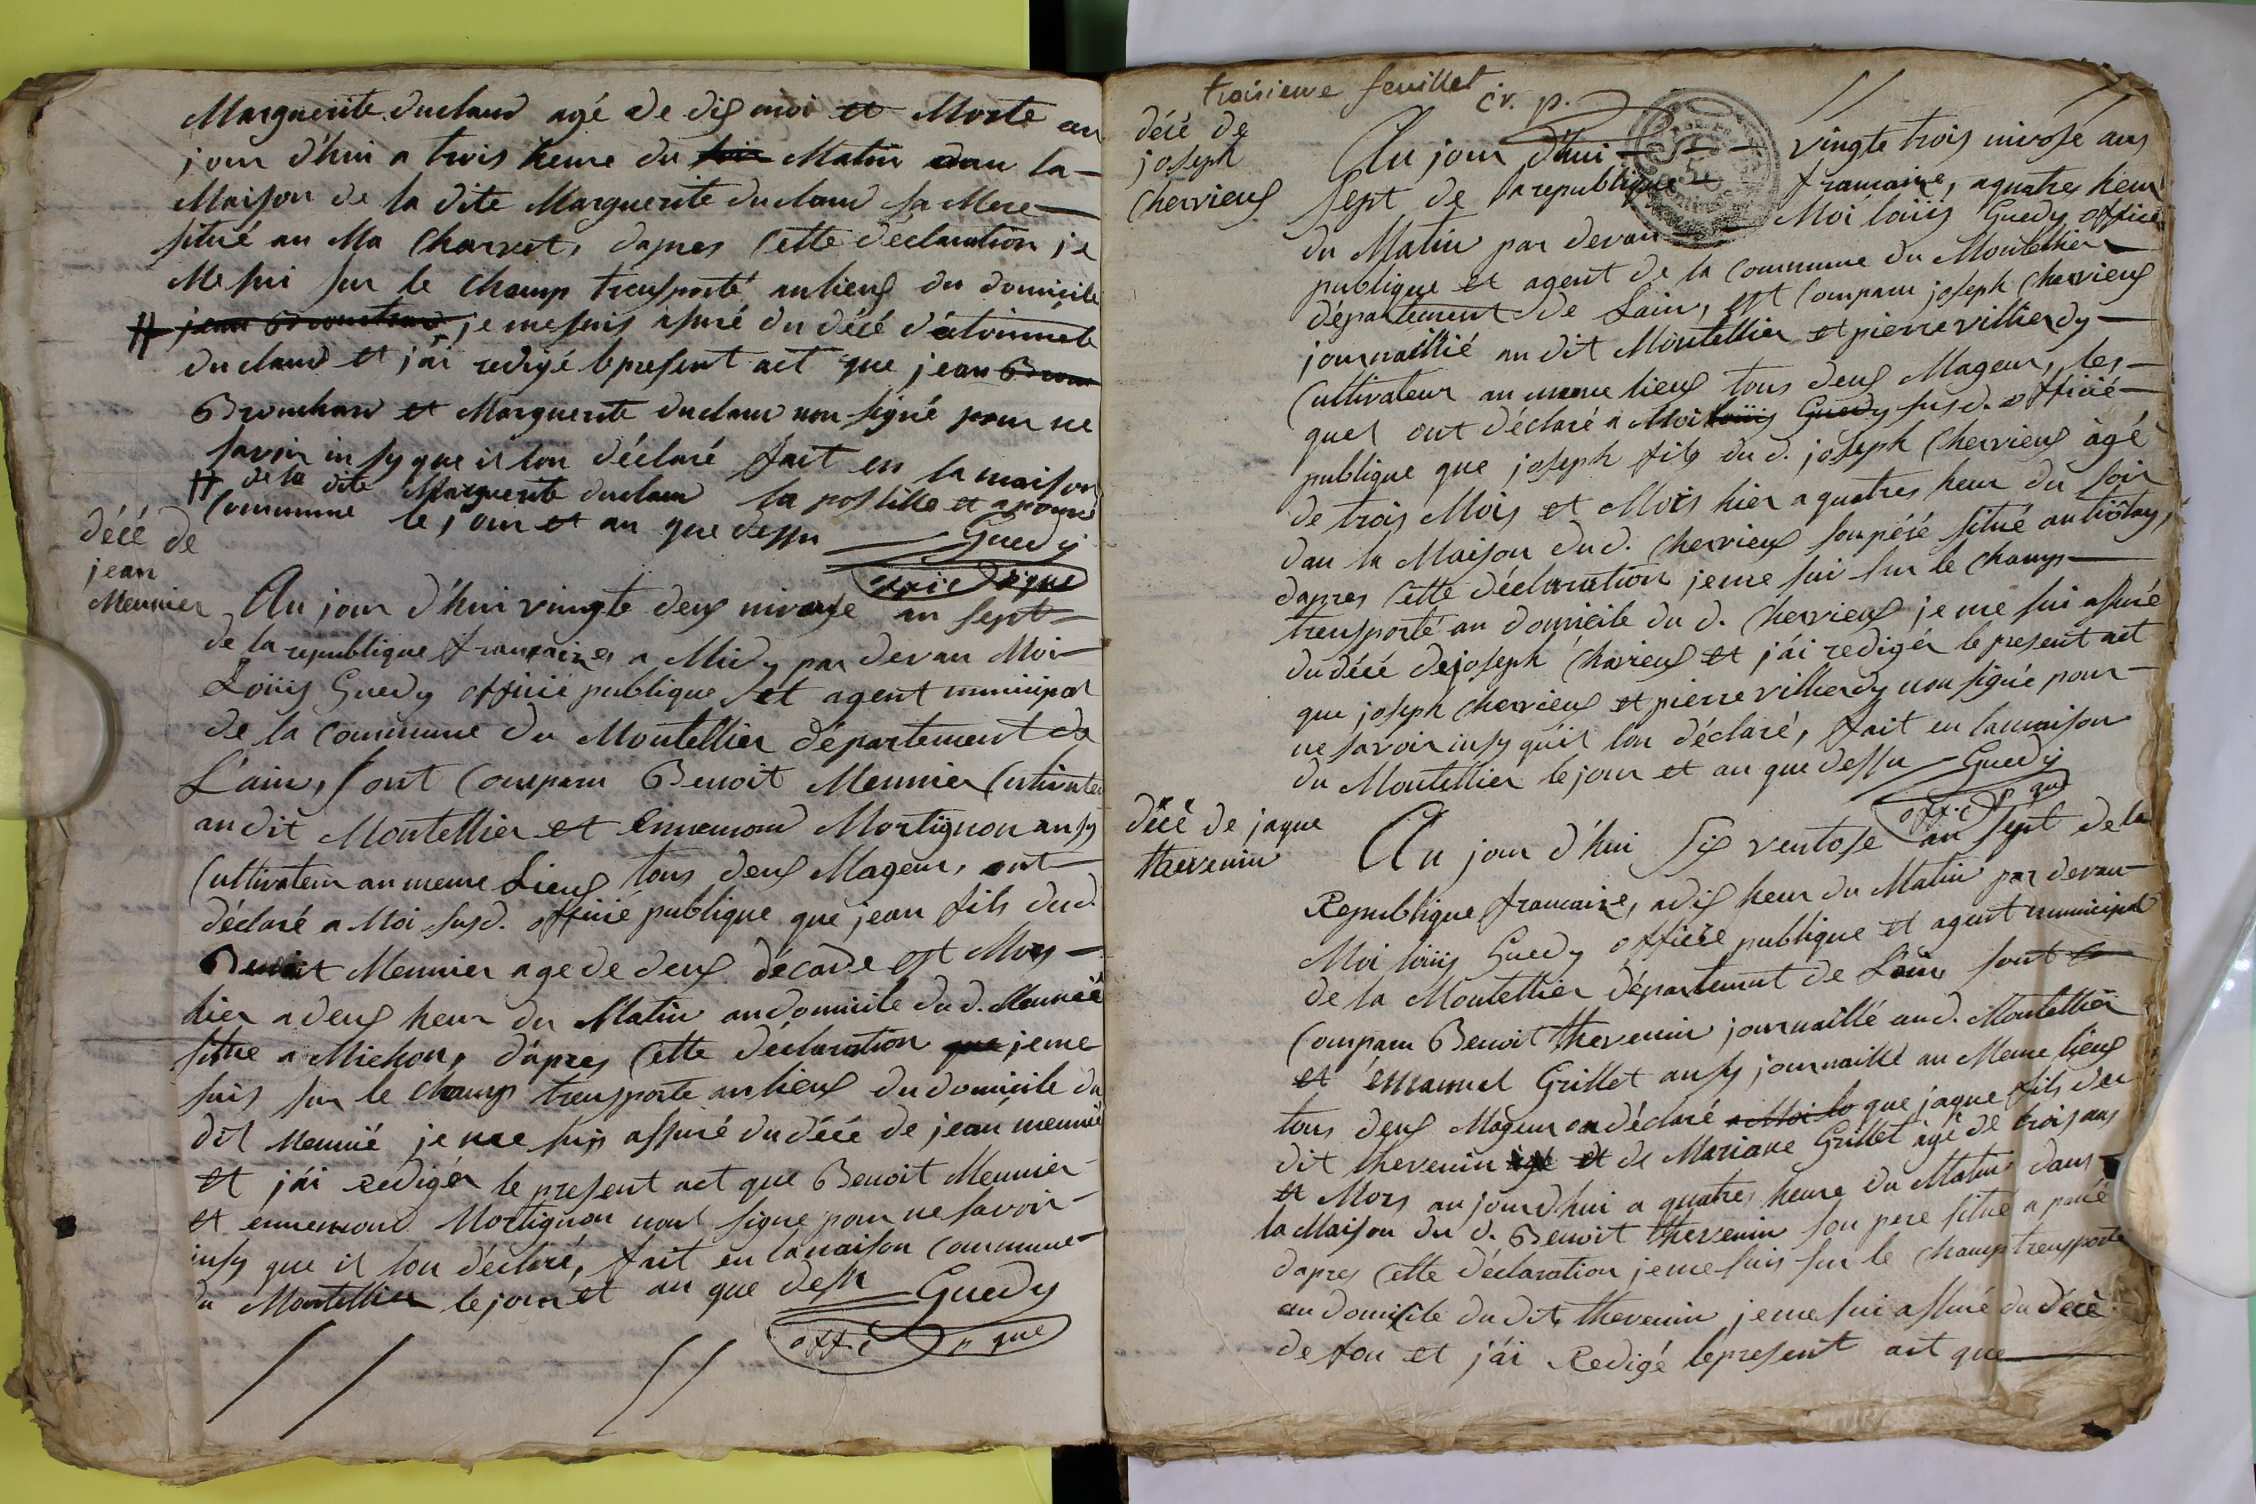 Marguerite duclaud agé de dix moi et Morte au
jour d'hui a trois heure du soir Matin dau la
Maison de la dite Marguerite duclaud sa Mere
situé au Ma Charvet, dapres cette déclaration je
Me sui sur le champ trensporté au lieux du domicile
# jean je me suis asuré du décé
duclaud et j'ai redigé le present act que jean Brou
Brouchard et Marguerite duclau non signé pour ne
savoir insy que il lon déclaré fait en la maison
# de la dite Marguerite duclau la postille et aprouvé
Commune le jour et an que dessu
Guedy
offic pque
décé de
jean
Meunier
Au jour d'hui vingte deux nivose an sept
de la republique francaires a Midy par devan Moi
Loüis Guedy officié publique et agent municipal
de la Commune du Montellier département de
L'ain, sont Comparu Benoit Meunier Cultivateu
au dit Montellier et Ennemond Mortignon ausy
Cultivateur au meme Lieux tous deux Mageur, ont
déclaré a Moi susd. officié publique que jean fils dud.
Benoit Meunier age de deux décade est Mors
hier a deux heur du Matin au domicile du d. Meunié
situe a Michon, d'apres Cette déclaration que je me
suis sur le champ trensporte au lieux du domicile du
dit Meunié je me suis assuré du décé de jean meunié
et j'ái rédigér le present act que Benoit Meunier
et ennemond Mortignon nont signe pour ne savoir
insy que il lon déclaré, fait en la maison Commune
du Montellier le jour et an que dessu
Guedy
offic p que
troisieme feuillet
décé de
joseph
Chervieux
Au jour d'hui vingte trois nivose ans
sept de la republique francaire, a quatres heur
du Matin par devan Moi loüis Guedy officié
publique et agent de la Commune du Montellier
département de Lain, est Comparu joseph Chervieux
journaillié au dit Montellier et pierre villierdy
Cultivateur au meme lieux tous deux Mageur, les
quel ont déclaré a Moi loüis Guedy susd. officié
publique que joseph fils du d. joseph Chervieux àgé
de trois Mois et Mors hier a quatres heur du soir
dau la Maison du d. Chervieux son péré situé
dapres Cette déclaration je me sui sur le champ
trensporté au domicile du d. Chervieux je me sui assuré
du décé de joseph Chervieux et j'ái redigér le present act
que joseph Chervieux et pierre villierdy non signé pour
ne savoir insy qu'il lon déclaré, fait en la maison
du Montellier le jour et an que dessu
Guedy
offic p que
décé de jaque
thevenin
Au jour d'hui six ventose an sept de la
Republique francaire, a dix heur du Matin par devan
Moi loüis Guedy officié publique et agent municipal
de la Montellier département de Lain sont Co
Comparu Benoit thevenin journaillé au d. Montellier
et émanuel Grillet ausy journaillé au Meme lieux
tous deux Mageur on déclaré a Moi lo que jaque fils du
dit thevenin agé et de Mariane Grillet age de trois ans
et Mors au jourdhui a quatres heure du Matin dans
la Maison du d. Benoit thevenin son pere situé a
dapres Cette déclaration je me suis sur le champ trensporte
au domicile du dit thevenin je me sui assuré du décé
de fon et j'ái Redigé le present act que